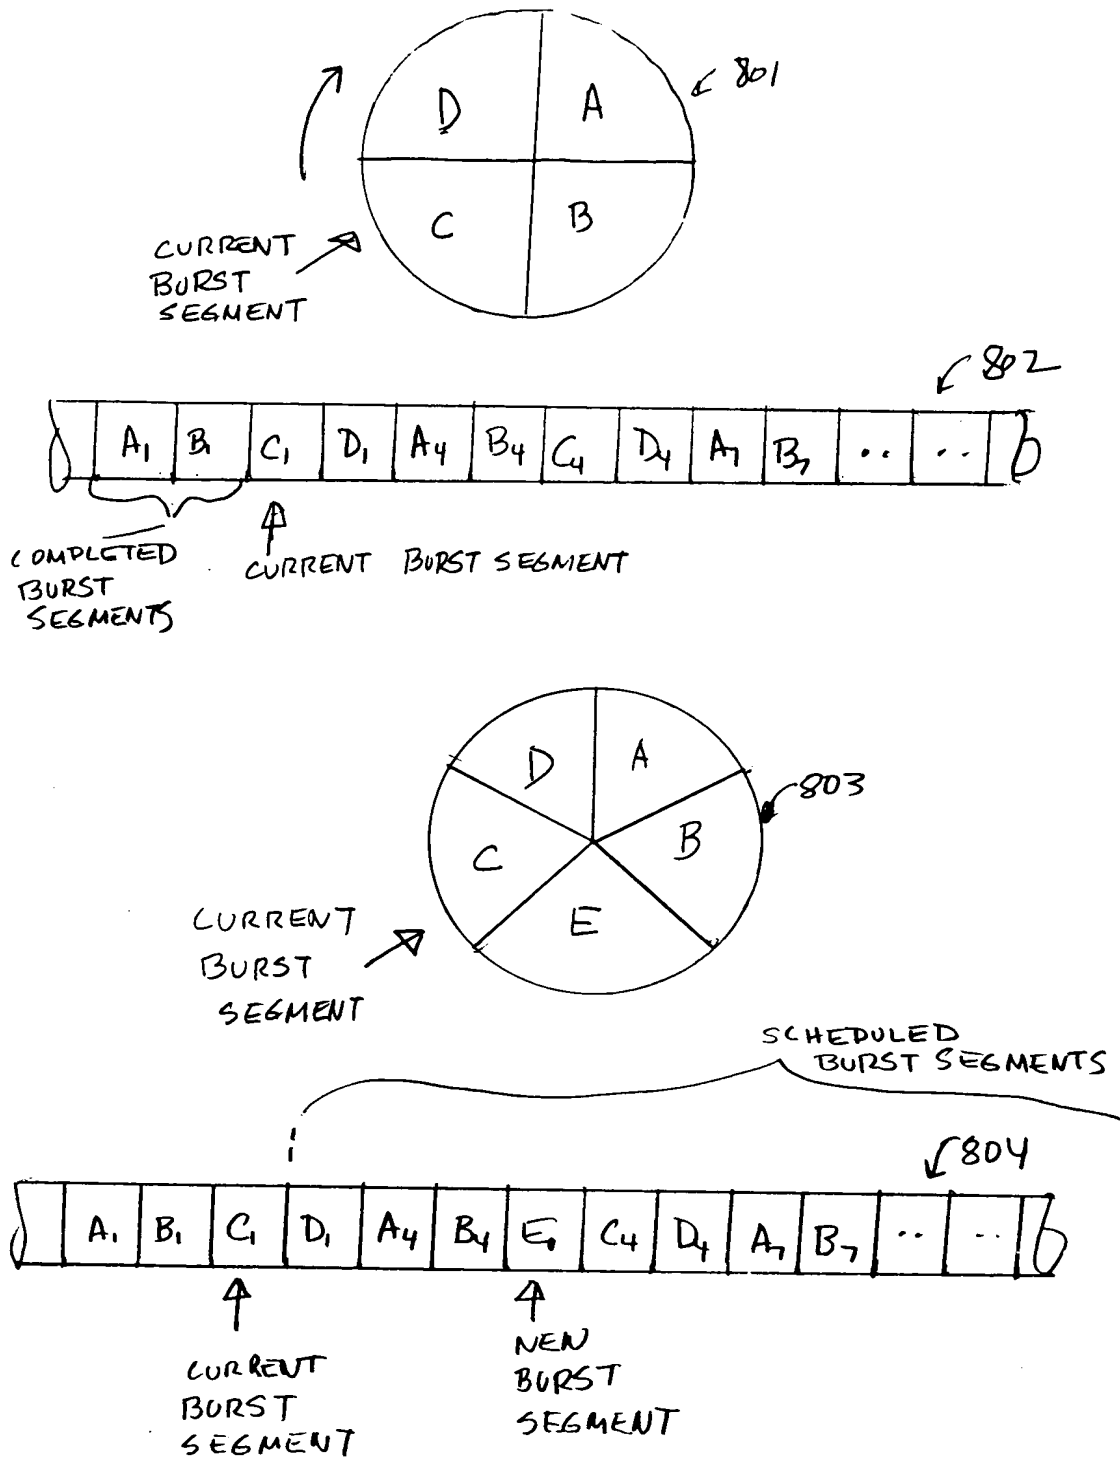 D A
801
C B
CURRENT
BURST
SEGMENT
802
A₁ B₁ C₁ D₁ A₄ B₄ C₄ D₄ A₇ B₇ .. ..
COMPLETED
BURST
SEGMENTS
CURRENT BURST SEGMENT
D A
803
C B
E
CURRENT
BURST
SEGMENT
SCHEDULED
BURST SEGMENTS
804
A₁ B₁ C₁ D₁ A₄ B₄ E₁ C₄ D₄ A₇ B₇ .. ..
CURRENT
BURST
SEGMENT
NEW
BURST
SEGMENT